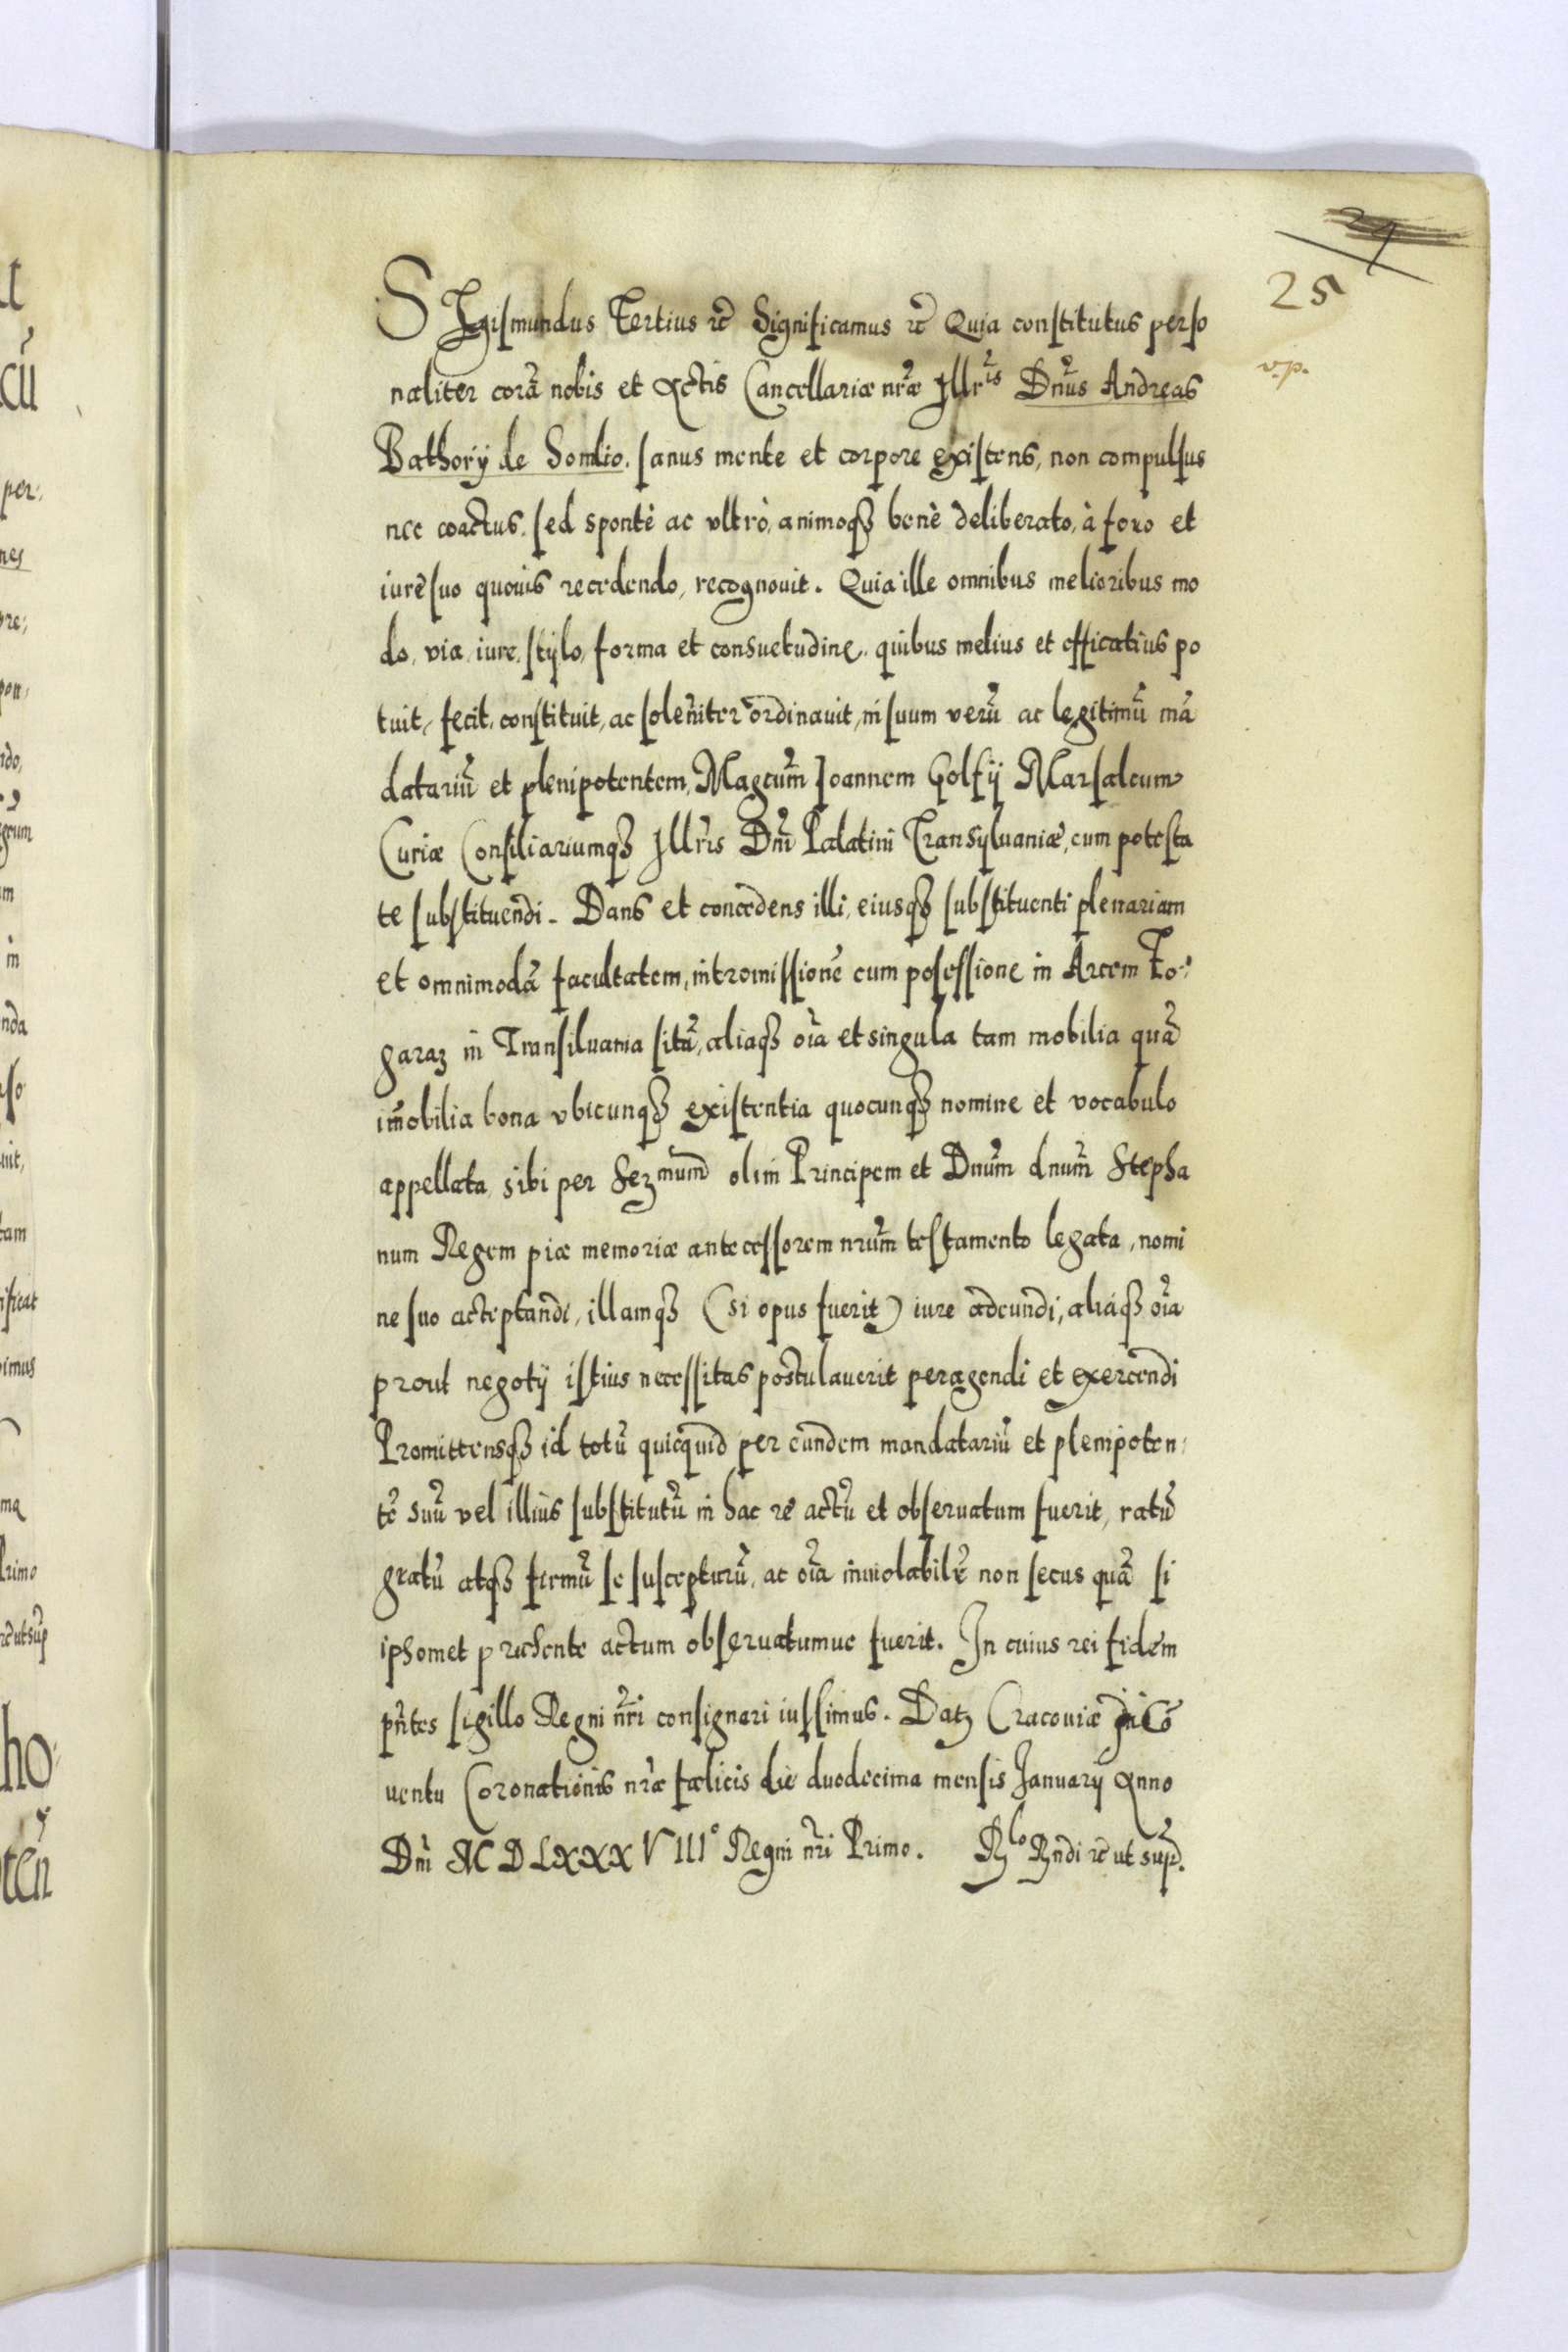 24
25
v.p.
SIgismundus Tertius rc̃ Significamus rc̃ Quia constitutus perso
naliter corã nobis et Actis Cancellariæ nr̃æ Illr̃is Dñus Andreas
Bathorÿ de Somlio, sanus mente et corpore existens, non compulsus
nec coactus, sed spontè ac vltrò, animoqȝ benè deliberato, à foro et
iurè suo quouis recedendo, recognouit. Quia ille omnibus melioribus mo
do, via, iure, stÿlo, forma et consuetudine, quibus melius et efficatius po
tuit, fecit, constituit, ac solem̃iter ordinauit, in suum verũ ac legitimũ mã
datariũ et plenipotentem, Magcum̃ Ioannem Golfÿ Marsalcum
Curiæ Consiliariumqȝ Illr̃is Dñi Palatini Transÿluaniæ, cum potesta
te substituendi. Dans et concedens illi, eiusqȝ substituenti plenariam
et omnimodã facultatem, intromissionẽ cum posessione in Arcem Fo⸗
garaz in Transiluania sitã, aliaqȝ oĩa et singula tam mobilia quã
im̃obilia bona vbicunqȝ existentia quocunqȝ nomine et vocabulo
appellata sibi per Serȝmum̃ olim Principem et Dnum̃ dnum̃ Stepha
num Regem piæ memoriæ antecessorem nrum̃ testamento legata, nomi
ne suo acceptandi, illamqȝ (si opus fuerit) iure adeundi, aliaqȝ oĩa
prout negotÿ istius necessitas postulauerit peragendi et exercendi
Promittensqȝ id totũ quicquid per eundem mandatariũ et plenipoten⸗
tẽ suũ vel illius substitutũ in hac re actũ et obseruatum fuerit, ratũ
gratũ atqȝ firmũ se suscepturũ, ac oĩa inuiolabilẽ non secus quã si
ipsomet præsente actum obseruatumue fuerit. In cuius rei fidem
pñtes sigillo Regni nr̃i consignari iussimus. Datȝ Cracouiæ in Cõ
uentu Coronationis nr̃æ fælicis die duodecima mensis Januarÿ Anno
Dñi MDLXXXVIII° Regni nr̃i Primo. Rlo Rndi rc̃ ut sup̃.